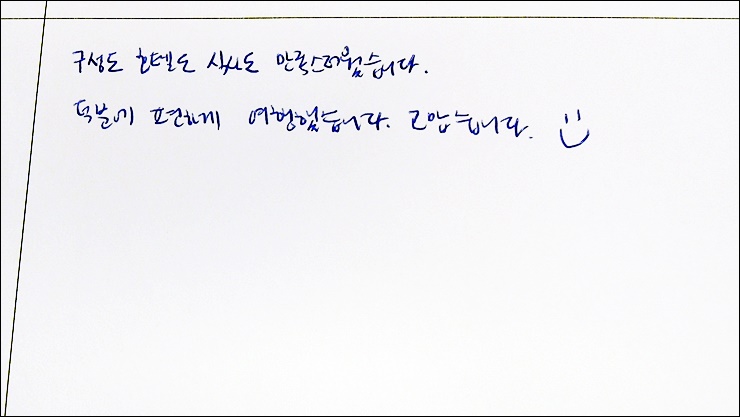 구성도 호텔도 식사도 만족스러웠습니다.
덕분에 편하게 여행했습니다. 고맙습니다.